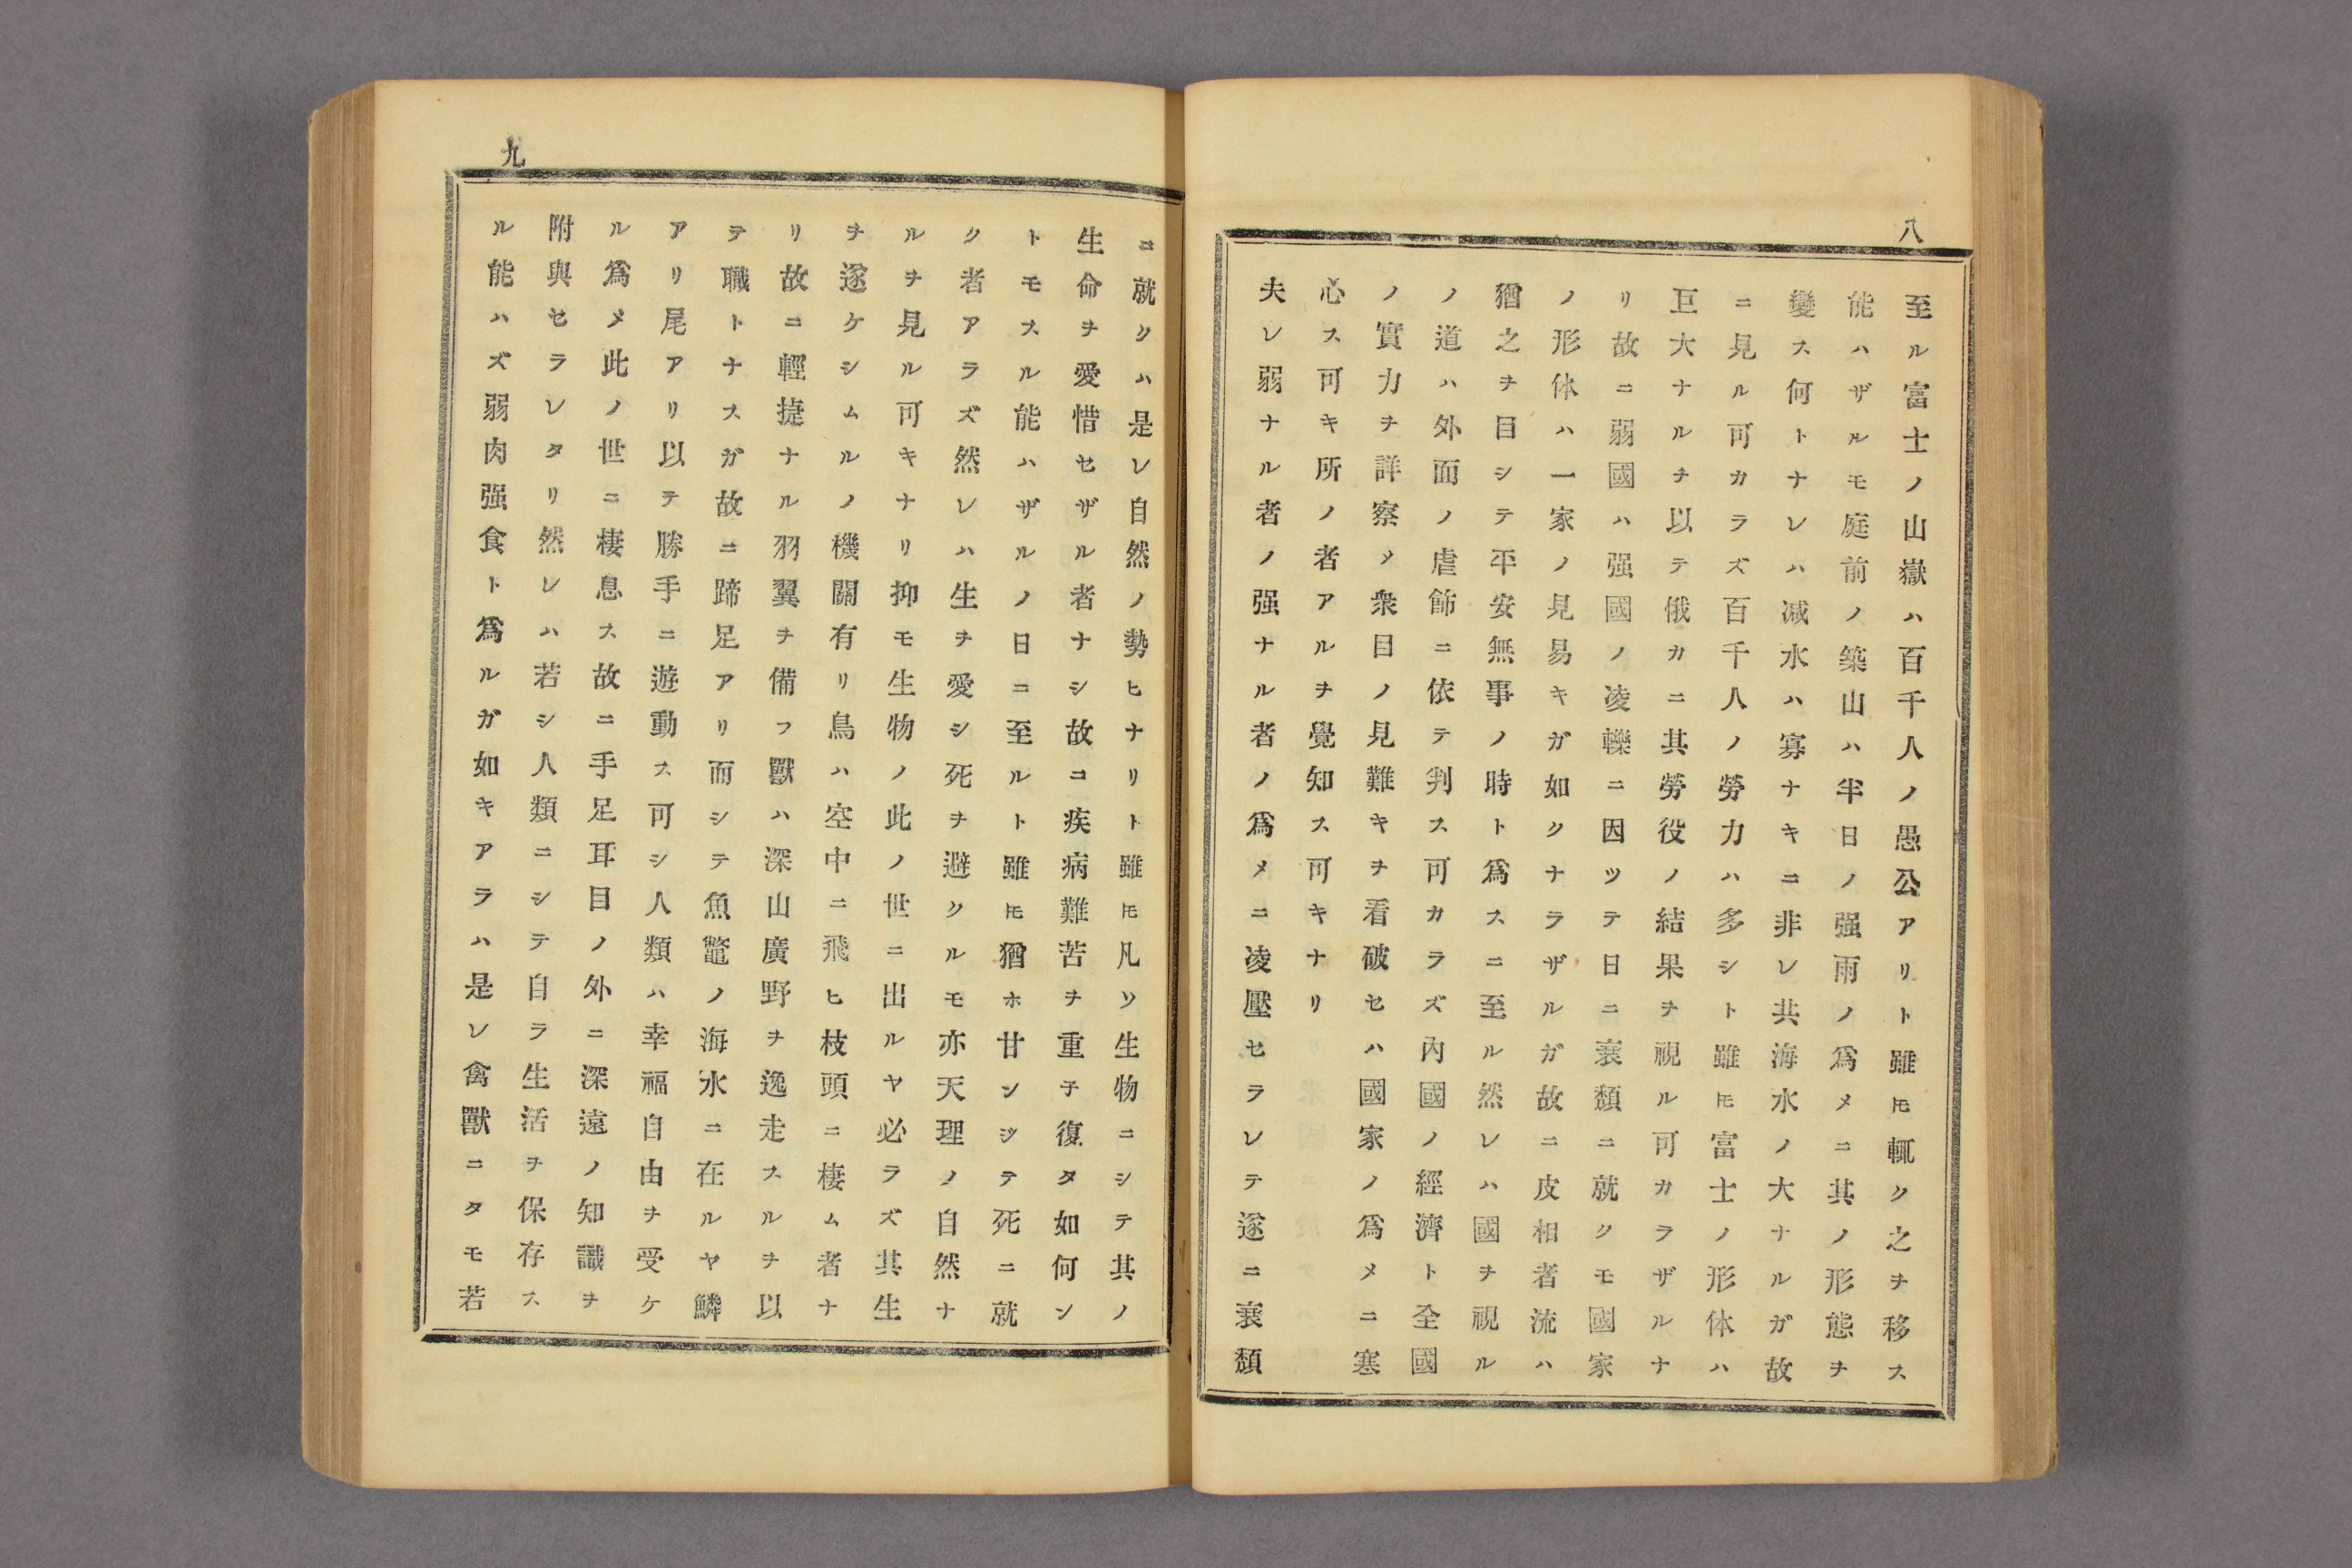 八
至ル富士ノ山嶽ハ百千人ノ愚公アリト雖𪜈輒ク之ヲ移ス
能ハザルモ庭前ノ築山ハ半日ノ强雨ノ爲メニ其ノ形態ヲ
變ス何トナレハ减水ハ寡ナキニ非レ共海水ノ大ナルガ故
ニ見ル可カラズ百千人ノ勞力ハ多シト雖𪜈富士ノ形体ハ
巨大ナルヲ以テ俄カニ其勞役ノ結果ヲ視ル可カラザルナ
リ故ニ弱國ハ强國ノ凌轢ニ因ツテ日ニ衰頽ニ就クモ國家
ノ形体ハ一家ノ見易キガ如クナラザルガ故ニ皮相者流ハ
猶之ヲ目シテ平安無事ノ時ト爲スニ至ル然レハ國ヲ視ル
ノ道ハ外面ノ虐飾ニ依テ判ス可カラズ內國ノ經濟ト全國
ノ實力ヲ詳察メ衆目ノ見難キヲ看破セハ國家ノ爲メニ寒
心ス可キ所ノ者アルヲ覺知ス可キナリ
夫レ弱ナル者ノ强ナル者ノ爲メニ凌壓セラレテ遂ニ衰頽
九
ニ就クハ是レ自然ノ勢ヒナリト雖𪜈凡ソ生物ニシテ其ノ
生命ヲ愛惜セザル者ナシ故コ疾病難苦ヲ重子復タ如何ン
トモスル能ハザルノ日ニ至ルト雖𪜈猶ホ甘ンジテ死ニ就
ク者アラズ然レハ生ヲ愛シ死ヲ避クルモ亦天理ノ自然ナ
ルヲ見ル可キナリ抑モ生物ノ此ノ世ニ出ルヤ必ラズ其生
ヲ遂ケシムルノ機關有リ鳥ハ空中ニ飛ヒ枝頭ニ棲ム者ナ
リ故ニ輕捷ナル羽翼ヲ備フ獸ハ深山廣野ヲ逸走スルヲ以
テ職トナスガ故ニ蹄足アリ而シテ魚鼈ノ海水ニ在ルヤ鱗
アリ尾アリ以テ勝手ニ遊動ス可シ人類ハ幸福自由ヲ受ケ
ル爲メ此ノ世ニ棲息ス故ニ手足耳目ノ外ニ深遠ノ知識ヲ
附與セラレタリ然レハ若シ人類ニシテ自ラ生活ヲ保存ス
ル能ハズ弱肉强食ト爲ルガ如キアラハ是レ禽獸ニタモ若